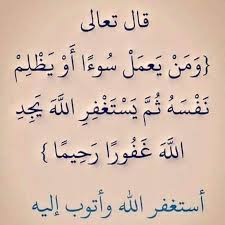 قال تعالى
{وَمَنْ يَعمَلْ سُوءًا أَوْ يَظْلِمْ
نَفْسَهُ ثُمَّ يَسْتَغْفِرِ اللَّهَ يَجِدِ
اللَّهَ غَفُورًا رَحِيمًا }
أستغفر الله وأتوب إليه